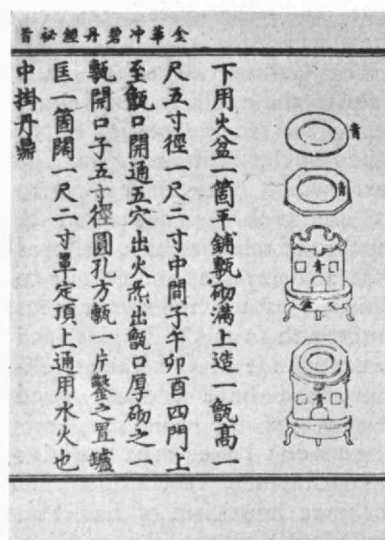 金華冲碧丹經祕旨
下用火盆一箇平鋪甎砌滿上造一甎高一
尺五寸徑一尺二寸中間子午卯酉四門上
至甎口開通五穴出火炁出甎口厚砌之一
甎開口子五寸徑圓孔方甎片鑿之置爐
匡一箇闊一尺二寸罩定頂上通用水火也
中掛丹鼎